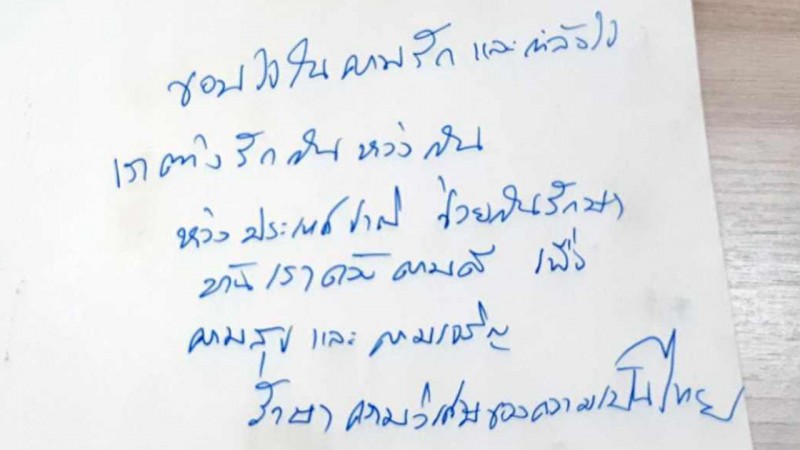 ขอบใจในความรักและกำลังใจ
เราต่างรักกันห่วงกัน
ห่วงประเทศชาติ ช่วยกันรักษา
บ้านเราด้วยความดี เพื่อ
ความสุข และ ความเจริญ
รักษา ความวิเศษของความเป็นไทย